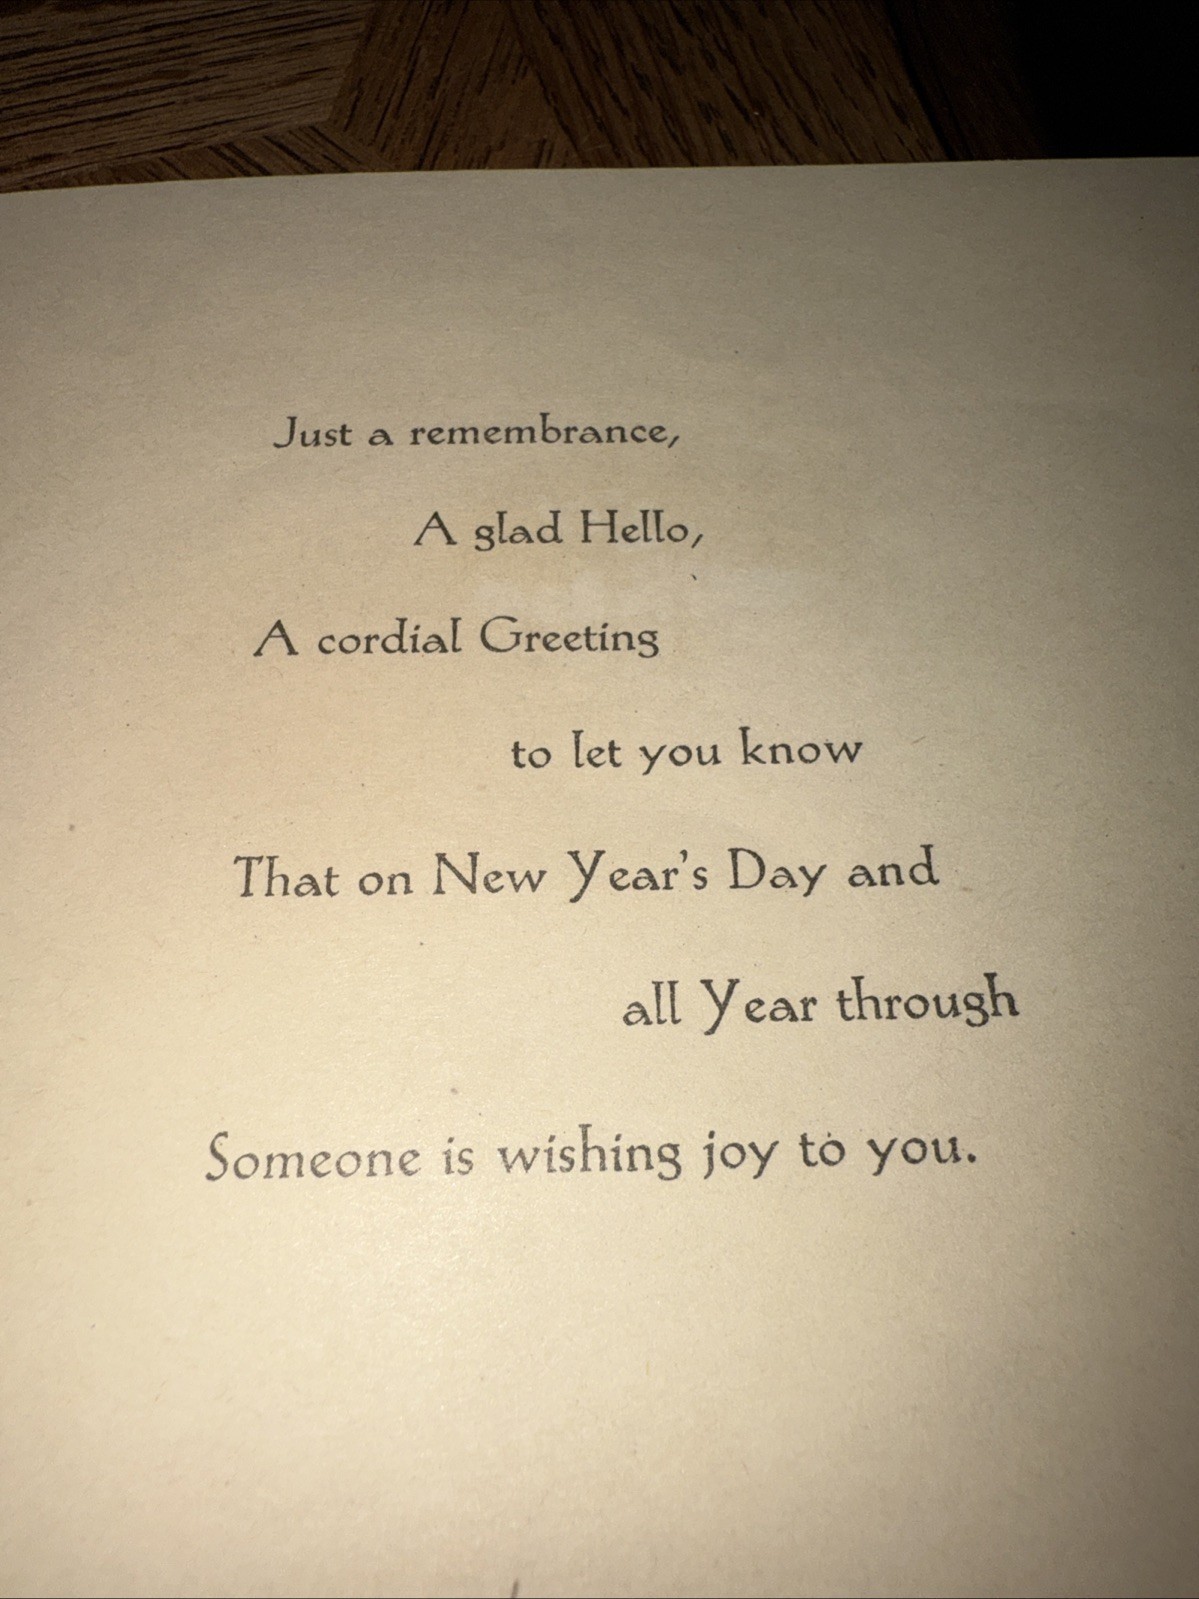 Just a remembrance,
A glad Hello,
A cordial Greeting
to let you know
That on New Year's Day and
all Year through
Someone is wishing joy to you.